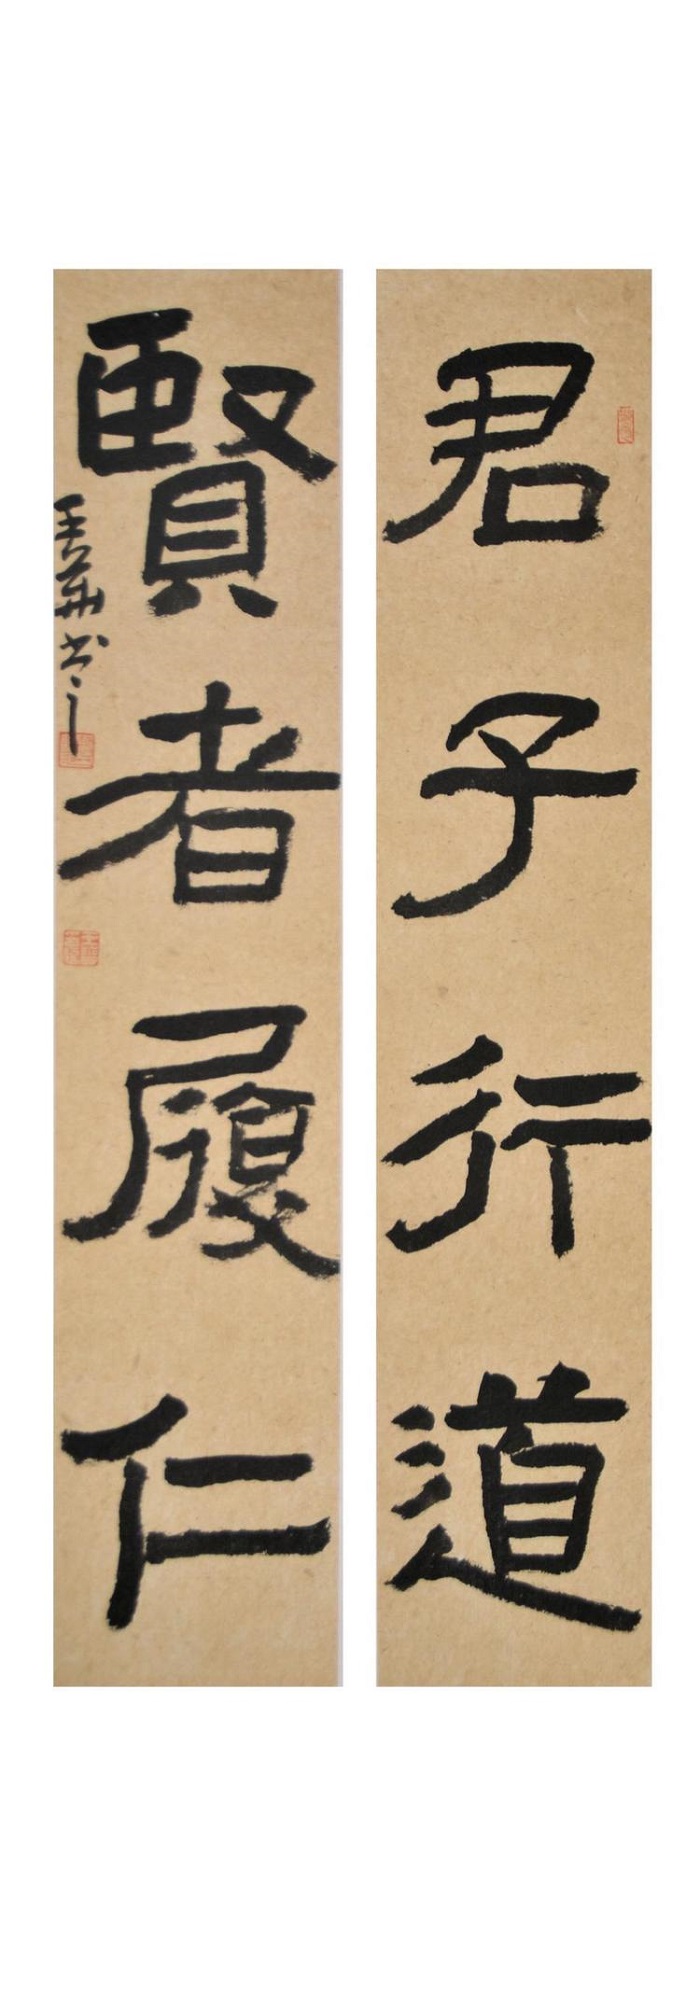 君子行道
賢者履仁
书之